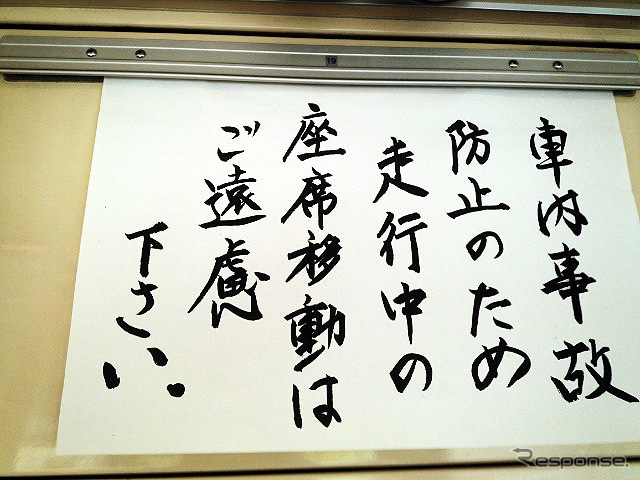 車内事故
防止のため
走行中の
座席移動は
ご遠慮
下さい.
19
Response.